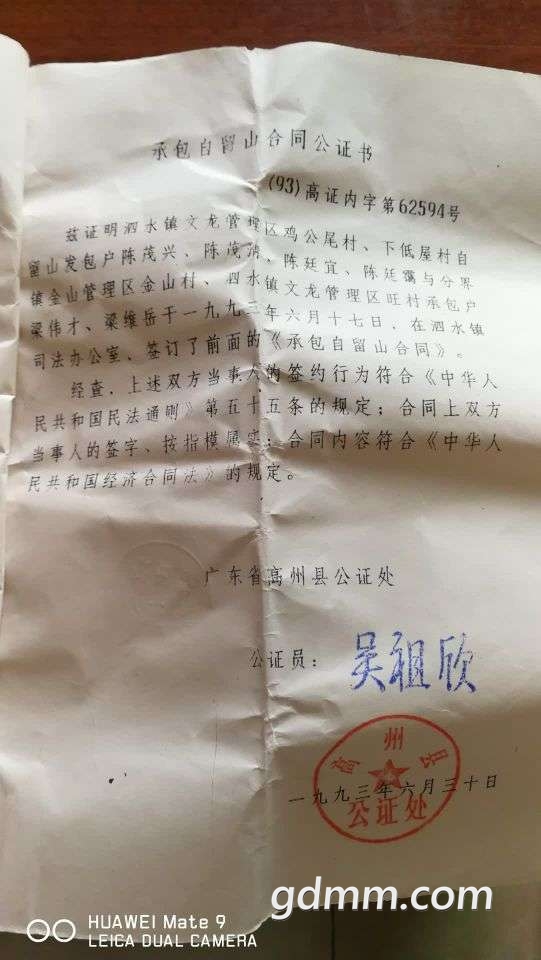 承包自留山合同公证书
(93)高证内字第62594号
兹证明泗水镇文龙管理区鸡公尾村、下低屋村自
留山发包户陈茂兴、陈茂清、陈廷宜、陈廷霭与分界
镇金山管理区金山村、泗水镇文龙管理区旺村承包户
梁伟才、梁维岳于一九九三年六月十七日，在泗水镇
司法办公室、签订了前面的《承包自留山合同》。
经查，上述双方当事人的签约行为符合《中华人
民共和国民法通则》第五十五条的规定；合同上双方
当事人的签字、按指模属实；合同内容符合《中华人
民共和国经济合同法》的规定。
广东省高州县公证处
公证员：吴祖欣
高州县
公证处
一九九三年六月三十日
gdmm.com
HUAWEI Mate 9
LEICA DUAL CAMERA